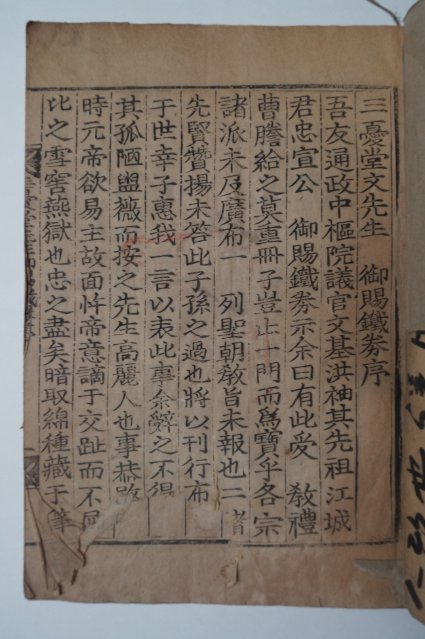 三憂堂文先生 御賜鐵券序
吾友通政中樞院議官文基洪袖其先祖江城
君忠宣公 御賜鐵券示余曰有此爱 敎禮
曹謄給之莫重冊子豈止一門而爲寶乎各宗
諸派未及廣布一 列聖朝敎旨未報也二 諸
先賢贊揚未答此子孫之過也將以刊行布
于世幸子惠我一言以表此事余辭之不得
其孤陋盥薇而按之先生高麗人也事恭愍
時元帝欲易主故面忤帝意謫于交趾而不屈
比之雪窖燕獄也忠之盡矣暗取綿種藏于筆